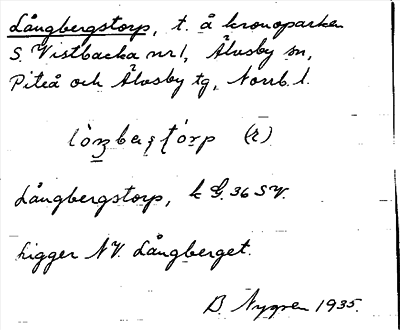 Långbergstorp, t. å kronoparken
S. Vistbacka nr 1, Älvsby sn,
Piteå och Älvsby tg, Norrb. l.
(r)
Långbergstorp, k G. 36 SV.
Ligger NV. Långberget.
D. Nygren 1935.